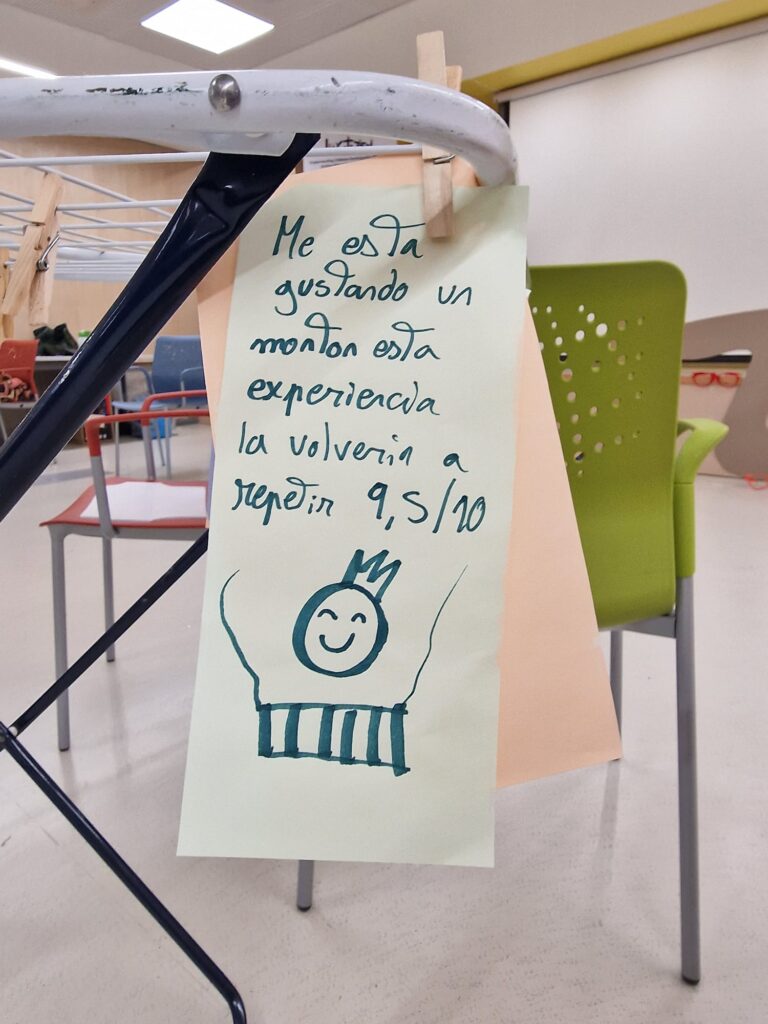 Me esta
gustando un
monton esta
experiencia
la volveria a
repetir 9,5/10